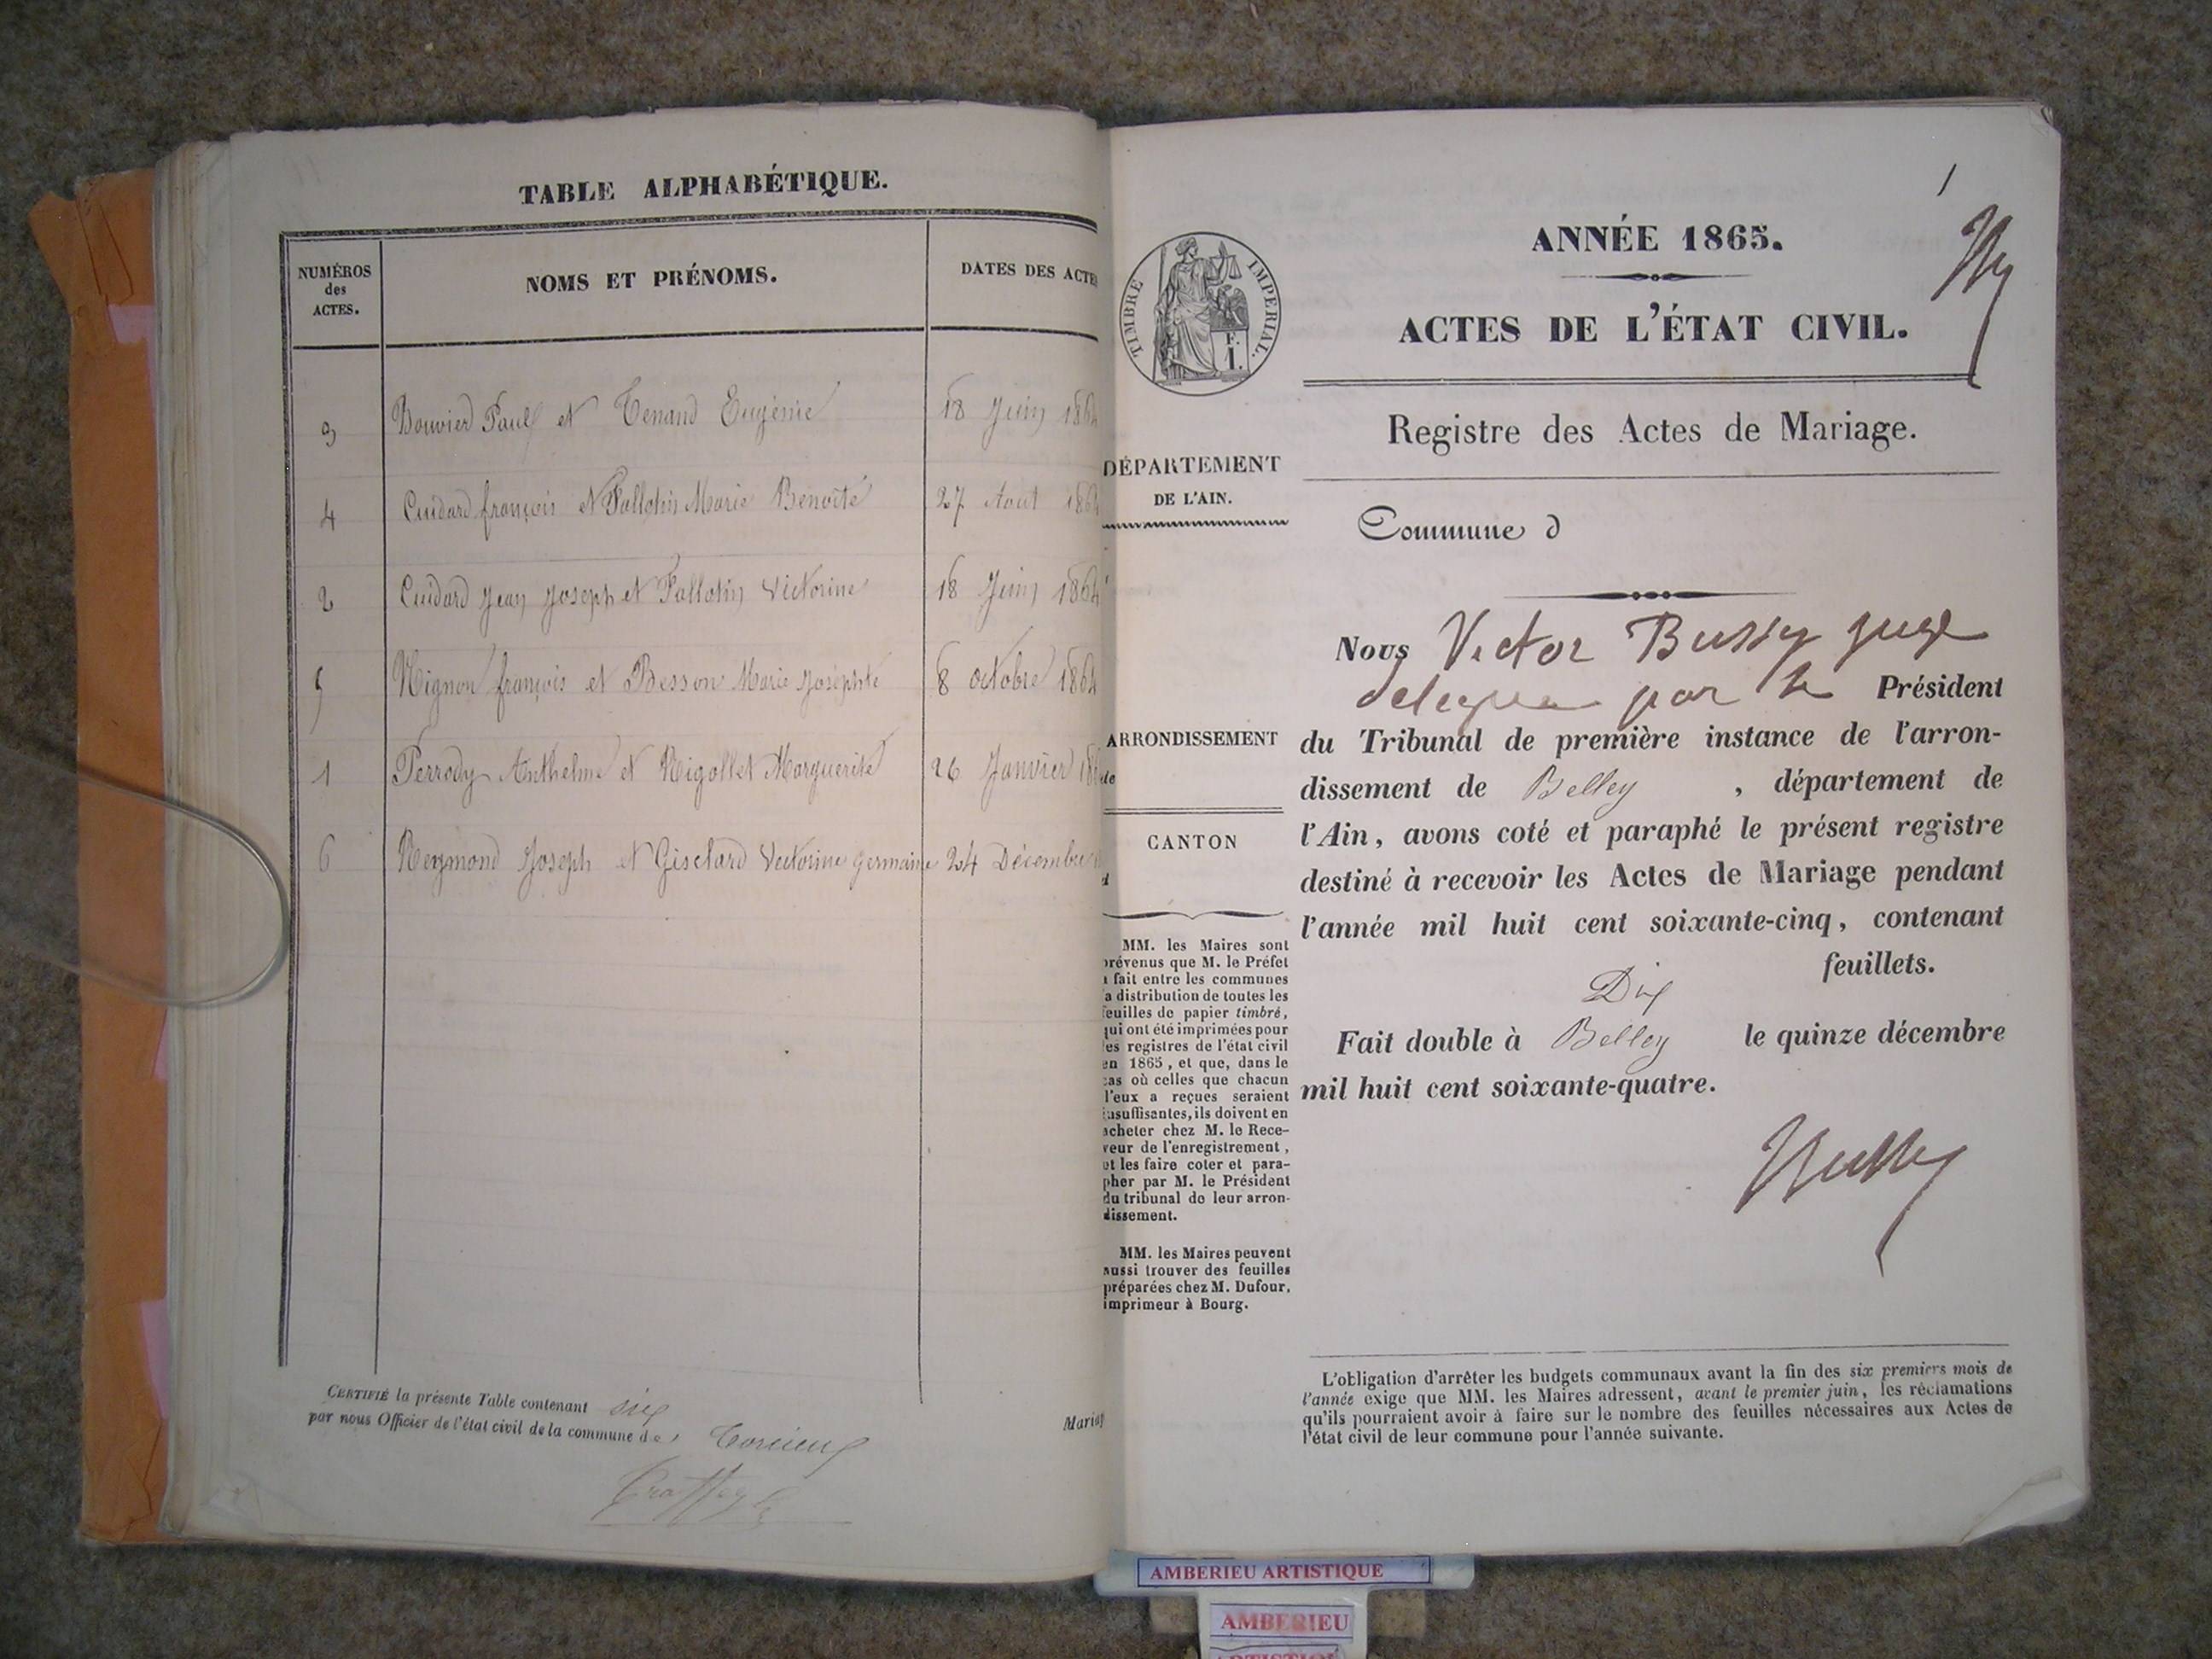 TABLE ALPHABÉTIQUE.
NUMÉROS
des
ACTES.
NOMS ET PRÉNOMS.
DATES DES ACTE
3 Bouvier Paul et Tenand Eugénie 18 Juin 1864
4 Cuidard françois et Fallotin Marie Benoite 27 Aout 1864
2 Cuidard Jean Joseph et Fallotin Victorine 18 Juin 1864
5 Mignon françois et Besson Marie Josephte 8 octobre 1864
1 Perrody Anthelme et Rigollet Marguerite 26 Janvier 18
6 Reymond Joseph et Gisclard Victorine Germaine 24 Décembre
CERTIFIÉ la présente Table contenant six
par nous Officier de l'état civil de la commune de Torcieu
Maria
1
TIMBRE IMPERIAL.
F.
1.
DÉPARTEMENT
DE L'AIN.
ARRONDISSEMENT
de
CANTON
d
MM. les Maires sont
prévenus que M. le Préfet
a fait entre les communes
la distribution de toutes les
feuilles de papier timbré,
qui ont été imprimées pour
les registres de l'état civil
en 1865, et que, dans le
cas où celles que chacun
d'eux a reçues seraient
insuffisantes, ils doivent en
acheter chez M. le Rece-
veur de l'enregistrement,
et les faire coter et para-
pher par M. le Président
du tribunal de leur arron-
dissement.
MM. les Maires peuvent
aussi trouver des feuilles
préparées chez M. Dufour,
imprimeur à Bourg.
ANNÉE 1865.
ACTES DE L'ÉTAT CIVIL.
Registre des Actes de Mariage.
Commune d
Nous Victor Bussy juge
delegue par le Président
du Tribunal de première instance de l'arron-
dissement de Belley , département de
l'Ain, avons coté et paraphé le présent registre
destiné à recevoir les Actes de Mariage pendant
l'année mil huit cent soixante-cinq, contenant
Dix feuillets.
Fait double à Belley le quinze décembre
mil huit cent soixante-quatre.
Bussy
L'obligation d'arrêter les budgets communaux avant la fin des six premiers mois de
l'année exige que MM. les Maires adressent, avant le premier juin, les réclamations
qu'ils pourraient avoir à faire sur le nombre des feuilles nécessaires aux Actes de
l'état civil de leur commune pour l'année suivante.
AMBERIEU ARTISTIQUE
AMBERIEU
ARTISTIQUE